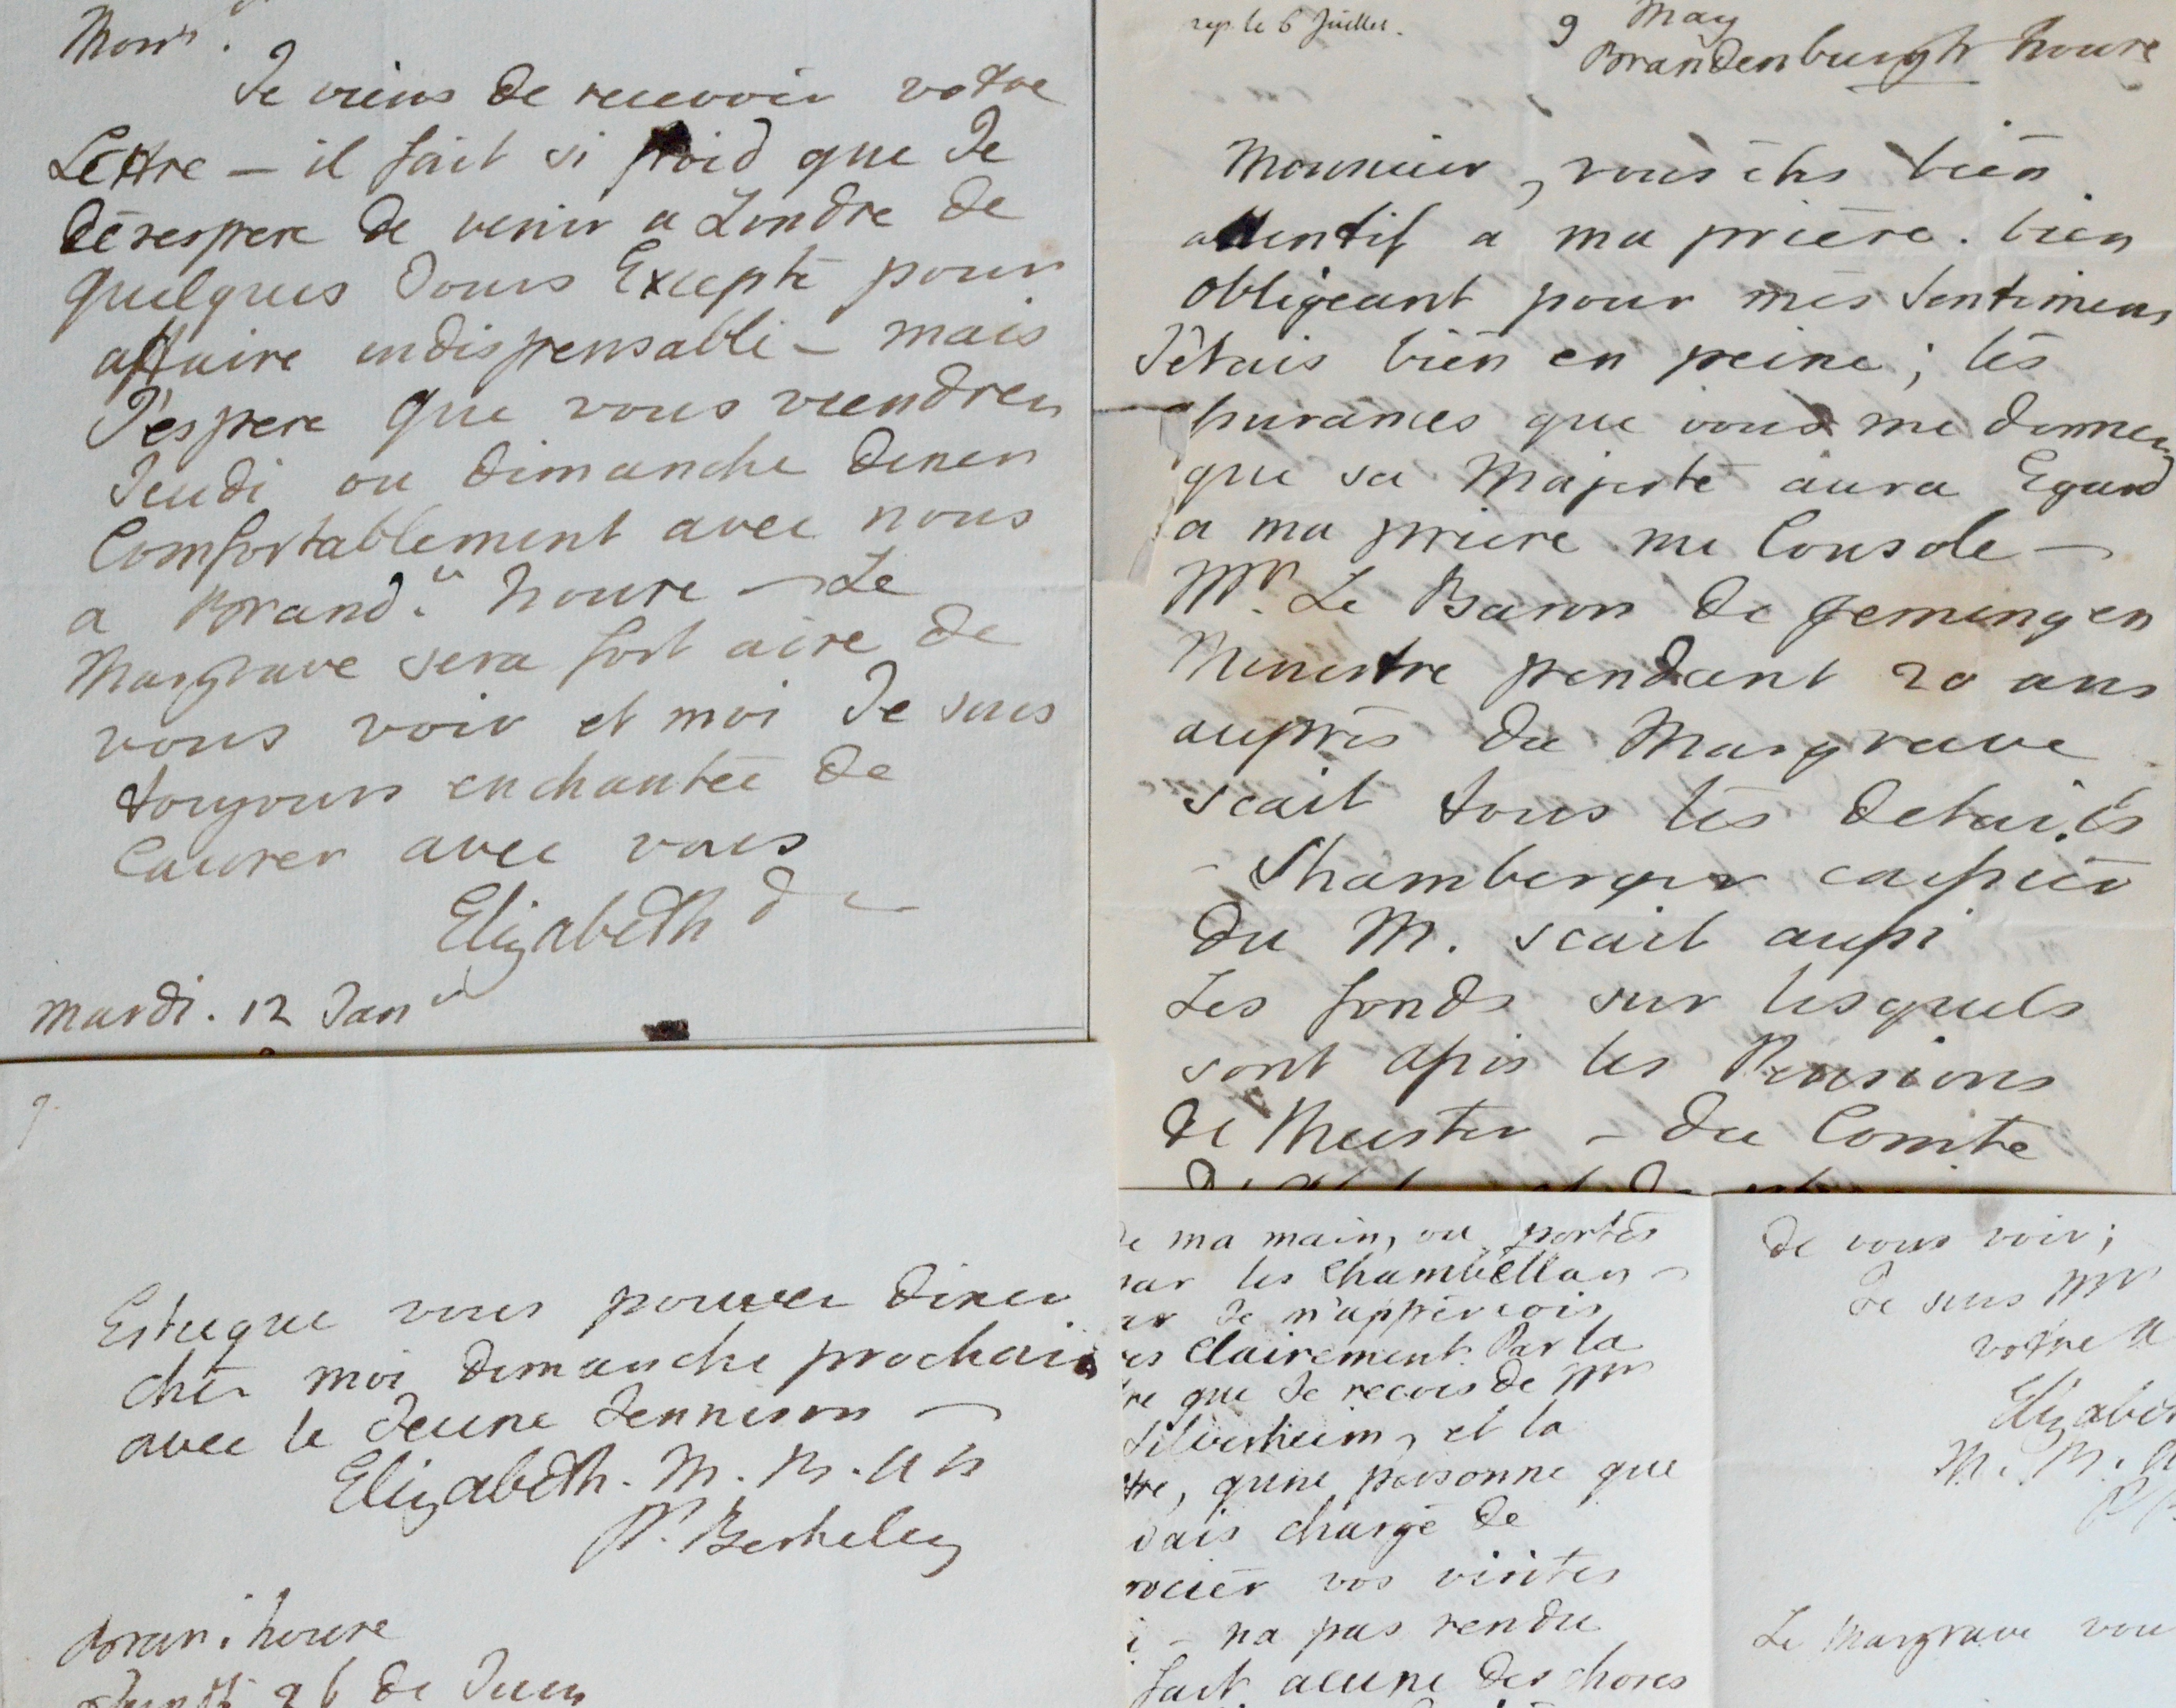 Monsr.
Je viens de recevoir votre
Lettre — il fait si froid que Je
désespere de venir a Londre de
quelques Jours Excepté pour
affaire indispensable — mais
J'espere que vous viendren
Jeudi ou dimanche diner
Comfortablement avec nous
a Brand. house — Le
Margrave sera fort aise de
vous voir et moi Je suis
toujours enchantée de
Causer avec vous
Elizabeth
mardi. 12 Janr
rep. le 6 Juillet.
9 May
Brandenburgh house
Monsieur, vous étes bien
attentif a ma prière. bien
obligeant pour mes Sentimens
J'étais bien en peine; les
assurances que vous me donnez
que sa Majesté aura Egard
a ma priere me Console —
Mr. Le Baron de Gemingen
Ministre pendant 20 ans
auprès du Margrave
scait tous les details
- Shamberger caissier
du M. scait aussi
Les fonds sur lesquels
sont assis les Pensions
de Meister — du Comte
Estceque vous pouvez diner
chés moi dimanche prochain
avec le Jeune Jennison —
Elizabeth. M. B. A B
Pr. Berkeley
Bran. house
26 de Juin
de ma main, ou portés
par les Chambellans —
Je m'appercois
clairement. Par la
que Je recois de Mr
Silverheim, et la
tre, qu'une personne que
vais chargé de
vos visites
— na pas rendu
fait aucune des choses
de vous voir;
Je suis Mr
votre a
Elizabet
M. B. A
Le Margrave vou